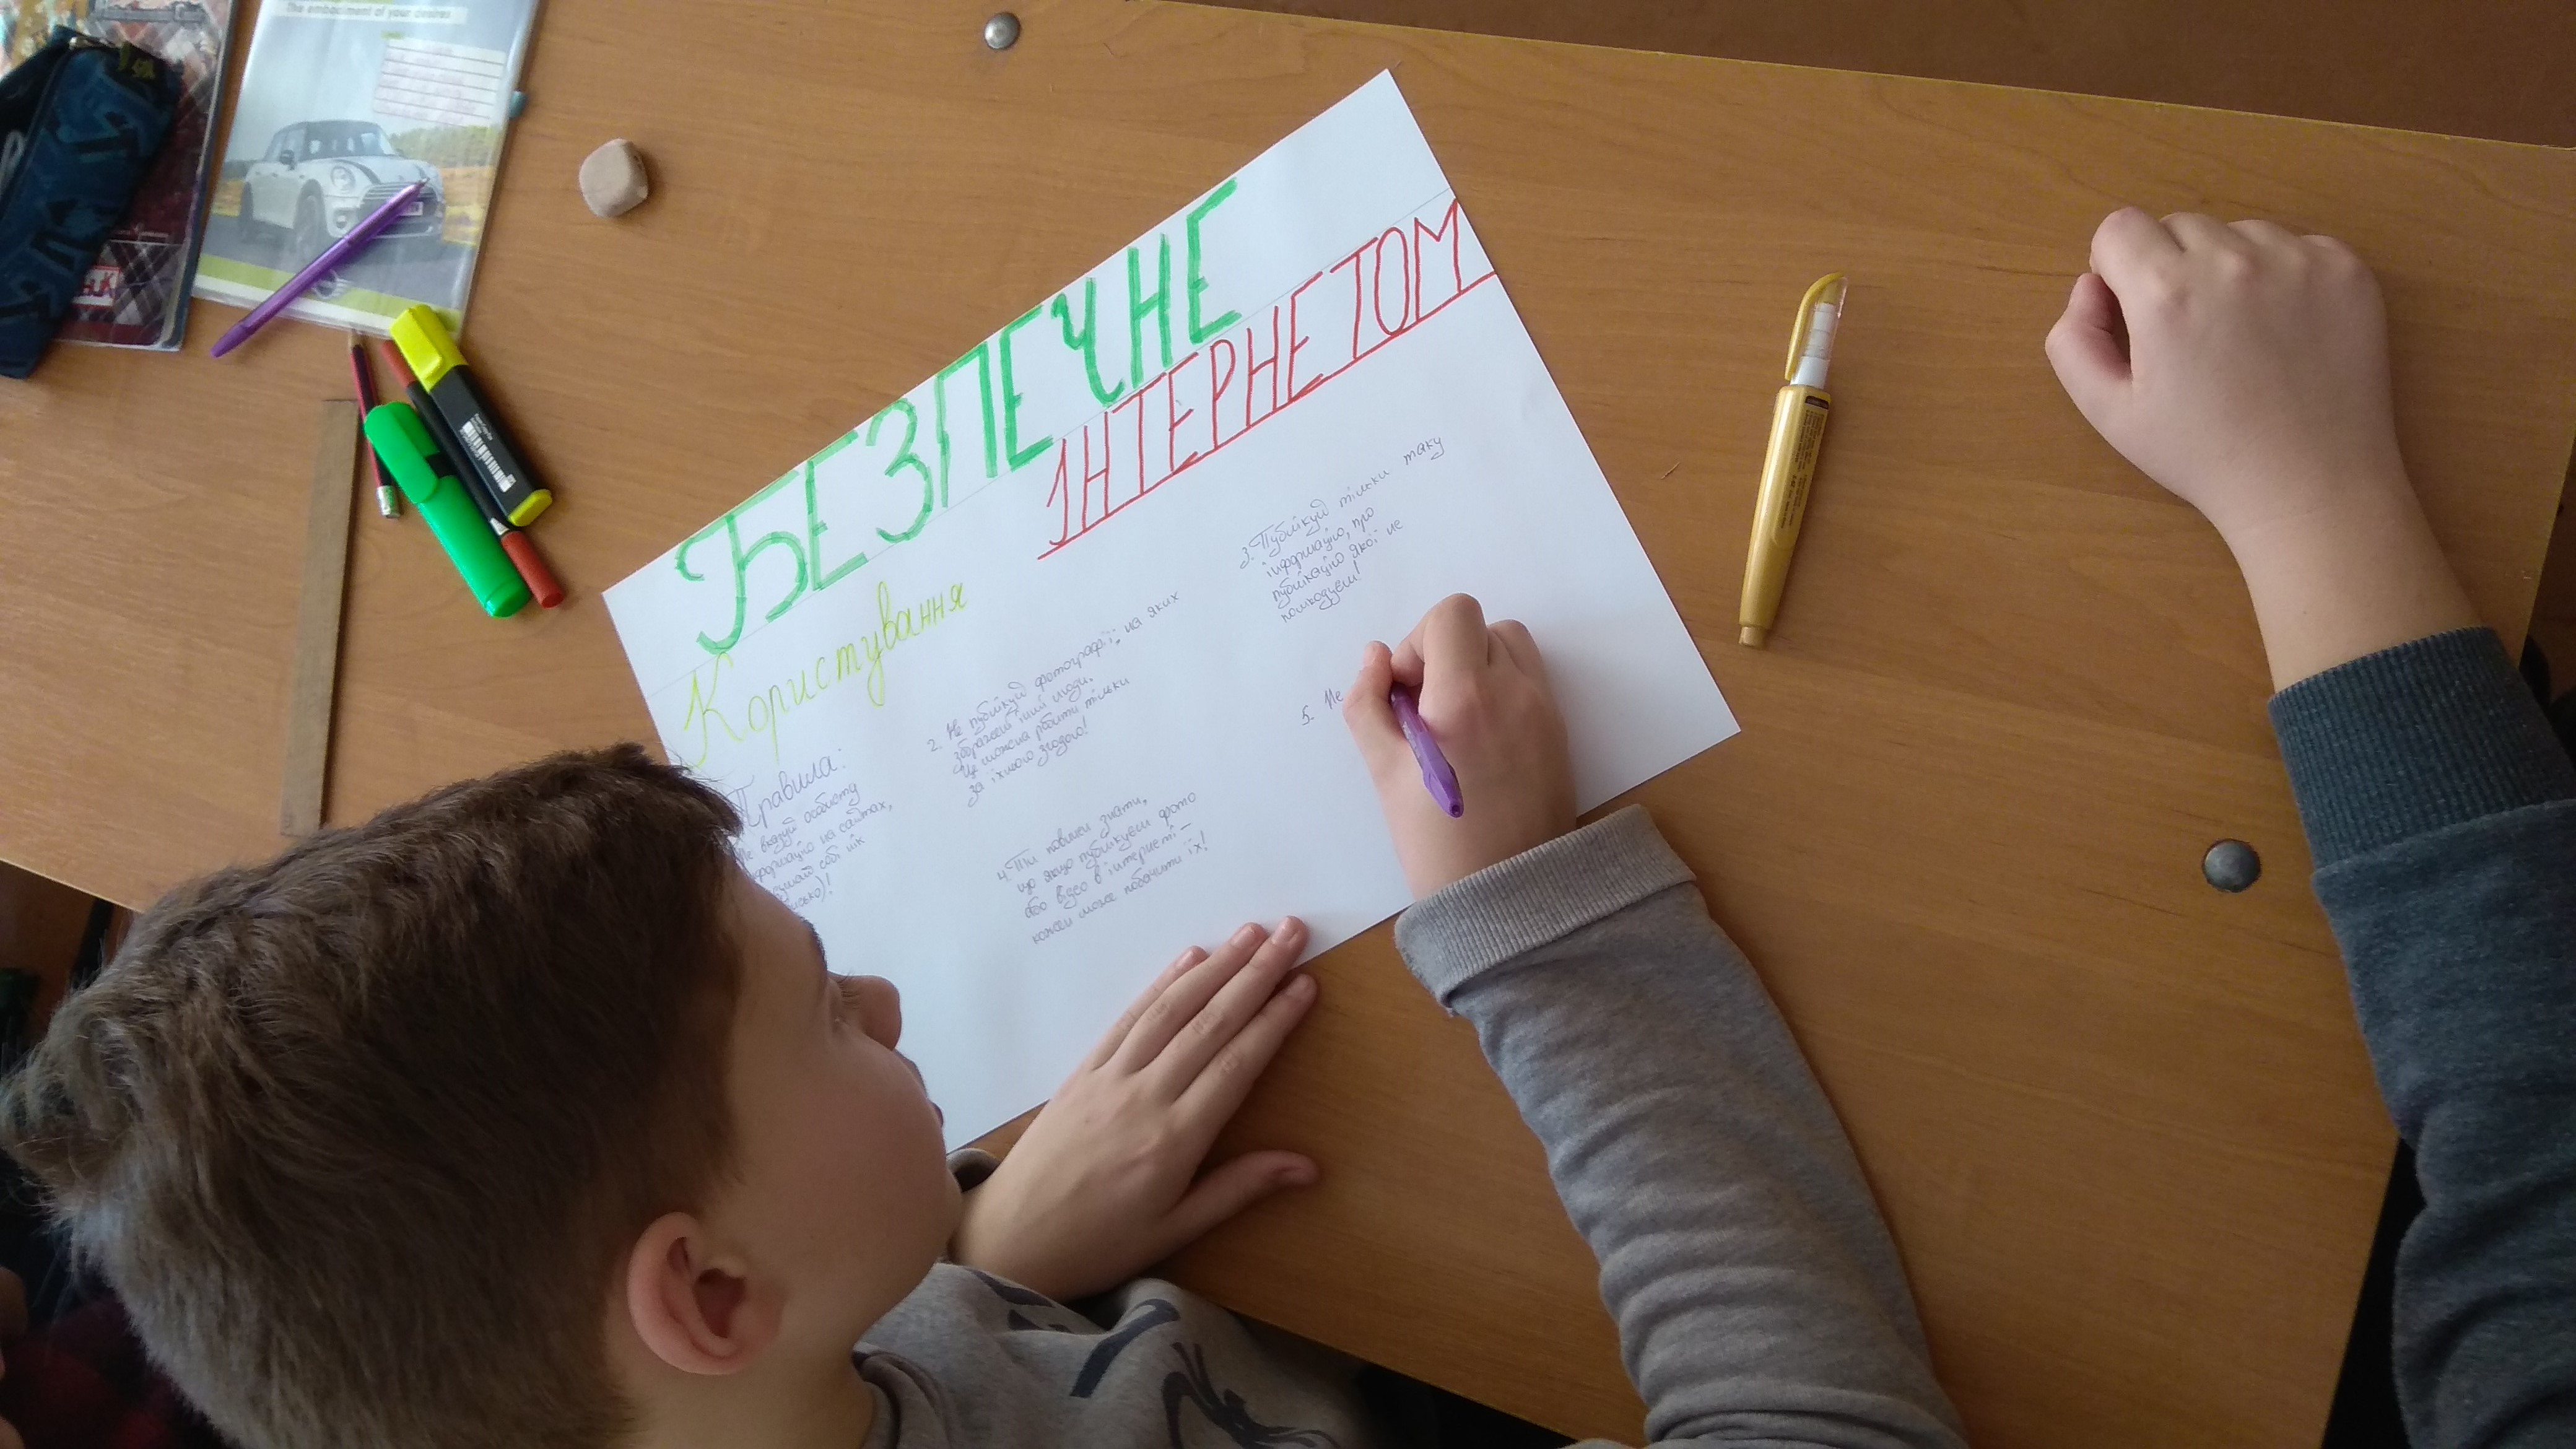 The embodiment of your desires
БЕЗПЕЧНЕ
ІНТЕРНЕТОМ
Користування
Правила:
Не вказуй особисту
на сайтах,
собі нік
2. Не публікуй фотографії, на яких
зображені інші люди.
Це можна робити тільки
за їхньою згодою!
3. Публікуй тільки таку
інформацію, про
публікацію якої не
пошкодуєш!
4. Ти повинен знати,
що якщо публікуєш фото
або відео в інтернеті –
кожен може побачити їх!
5. Не